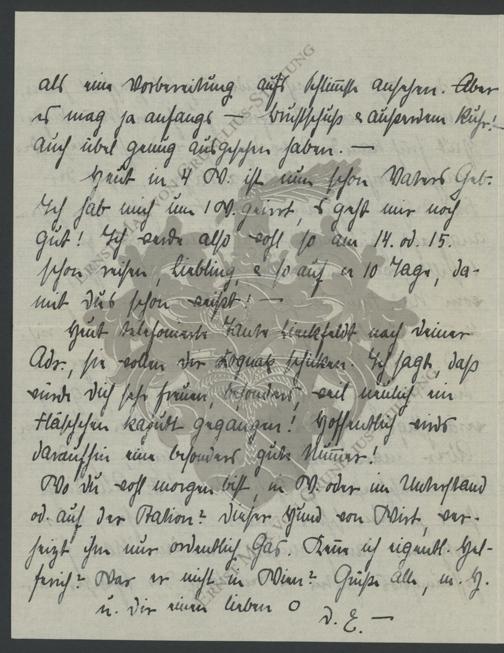 als eine Vorbereitung aufs Schlimmste ansehen. Aber
es mag ja anfangs — Brustschuß & außerdem Ruhr!
auch übel genug ausgesehen haben. —
Heut in 4 W. ist nun schon Vaters Geb.
Ich hab mich um 1 W. geirrt, es geht mir noch
gut! Ich werde also wohl so am 14. od. 15.
schon reisen, Liebling, & so auf 10 Tage, da-
mit Du's schon weißt! —
Heut telefonierte Tante nach Deiner
Adr., sie wollen Dir Kognak schicken. Ich sagte, daß
würde Dich sehr freuen, besonders, weil neulich ein
Fläschchen kaputt gegangen! Hoffentlich wird's
daraufhin eine besonders gute Nummer!
Wo Du wohl morgen bist, in W. oder im Unterstand
od. auf der Station? Dieser Hund von Wirt, ver-
heizt ihm nur ordentlich Gas. Kenne ich eigentl. Hel-
ferich? War er nicht in Wien? Grüße alle, m. H.
u. Dir einen lieben O
D. E. —
ERNST MAX VON GRUNELIUS-STIFTUNG
ERNST MAX VON GRUNELIUS-STIFTUNG